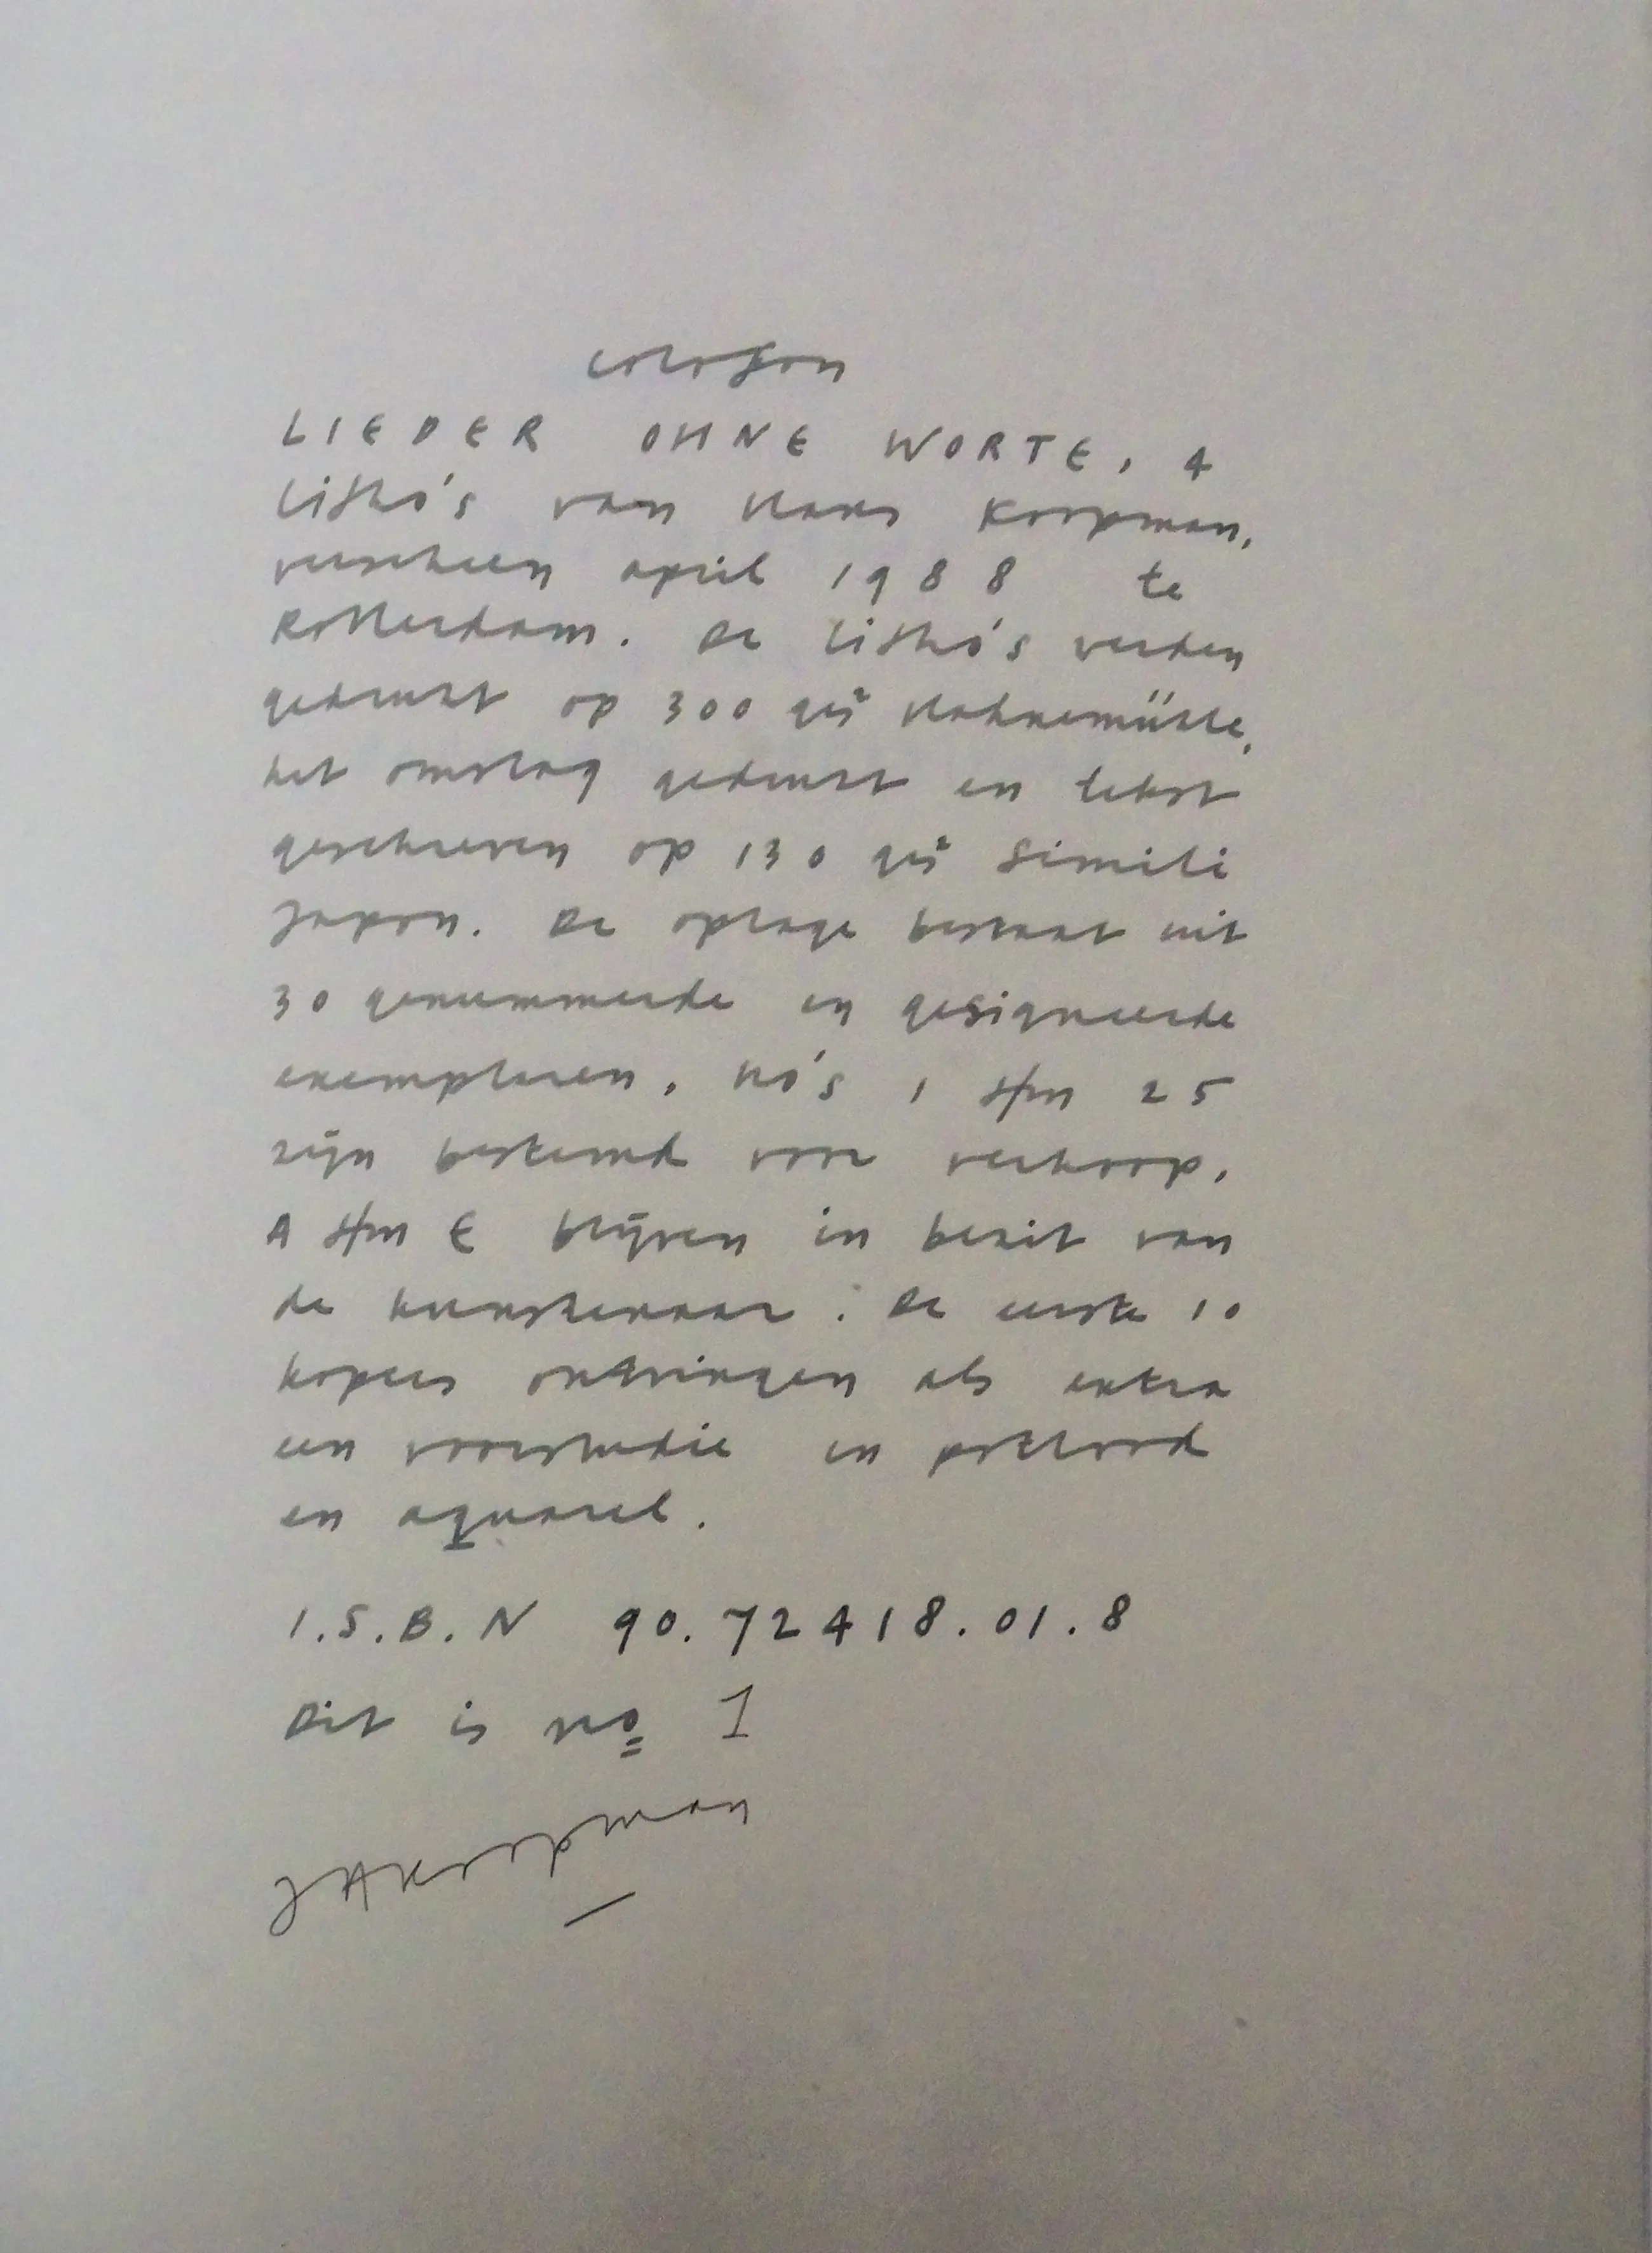 colofon
LIEDER OHNE WORTE, 4
litho's van Hans Koopman,
verscheen april 1988 te
Rotterdam. De litho's werden
gedrukt op 300 grs Hahnemühle,
het omslag gedrukt en tekst
geschreven op 130 grs Simili
Japon. De oplage bestaat uit
30 genummerde en gesigneerde
exemplaren. No's 1 t/m 25
zijn bestemd voor verkoop.
A t/m E blijven in bezit van
de kunstenaar. De eerste 10
kopers ontvingen als extra
een voorstudie in potlood
en aquarel.
I.S.B.N 90.72418.01.8
Dit is no 1
JAKoopman